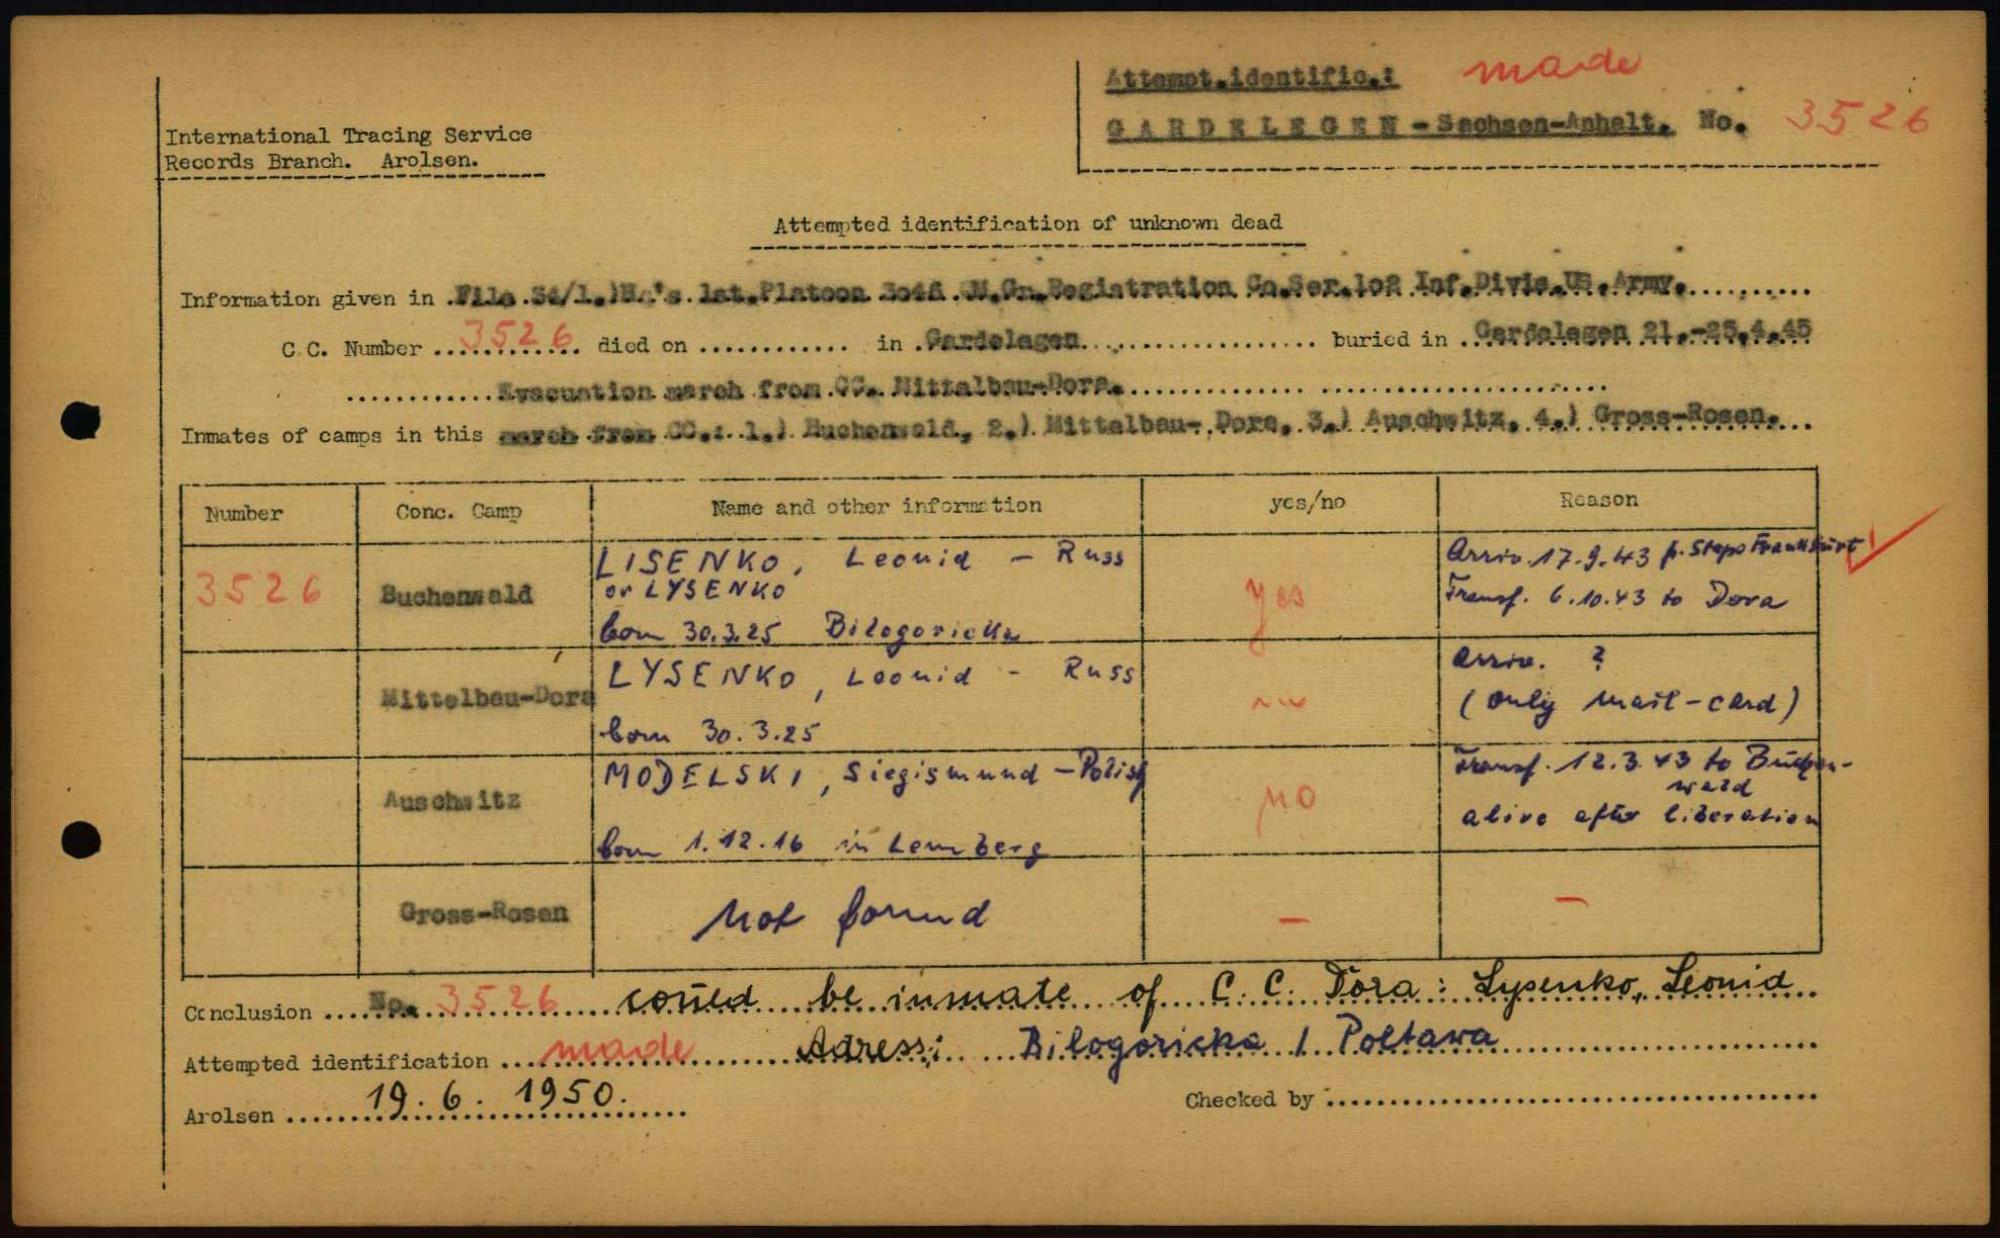 Attempt.identific.: made
GARDELEGEN - Sachsen-Anhalt. No. 3526
International Tracing Service
Records Branch. Arolsen.
Attempted identification of unknown dead
Information given in File 54/1.) 1st.Platoon 3046 Registration Co.Ser.102 Inf.Divis.US.Army.
C.C. Number 3526 died on in Gardelegen buried in Gardelegen 21.-25.4.45
Evacuation march from CC. Mittelbau-Dora.
Inmates of camps in this march from CC.: 1.) Buchenwald, 2.) Mittelbau-Dora, 3.) Auschwitz, 4.) Gross-Rosen.
Number Conc. Camp Name and other information yes/no Reason
3526 Buchenwald LISENKO, Leonid - Russ yes Arriv. 17.9.43 Stapo Frankfurt
or LYSENKO Transf. 6.10.43 to Dora
born 30.3.25 Bilogoricka
Mittelbau-Dora LYSENKO, Leonid - Russ Arriv. ?
(only mail-card)
born 30.3.25
Auschwitz MODELSKI, Siegismund - Polish no Transf. 12.3.43 to Buchen-
wald
alive after liberation
born 1.12.16 in Lemberg
Gross-Rosen not found - -
Conclusion No. 3526 could be inmate of C.C. Dora: Lysenko, Leonid
Attempted identification made Adress: Bilogoricka / Poltawa
Arolsen 19.6.1950. Checked by